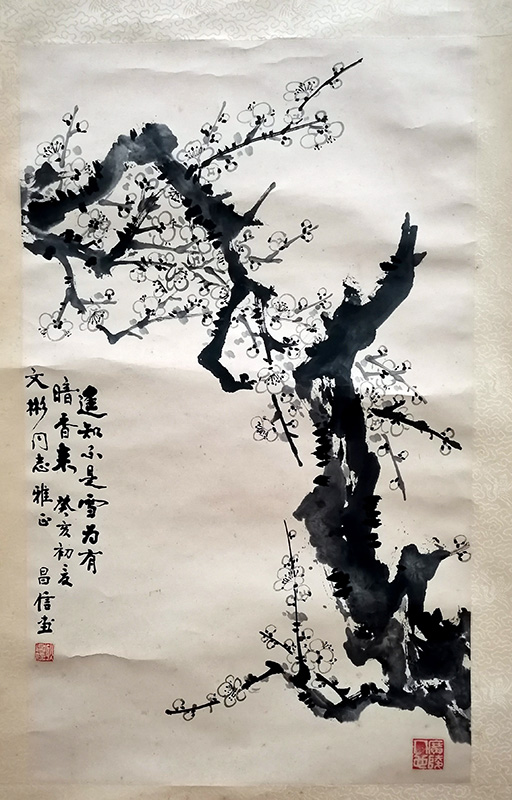 遥知不是雪为有
暗香来 癸亥初夏
文彬同志雅正 昌信画